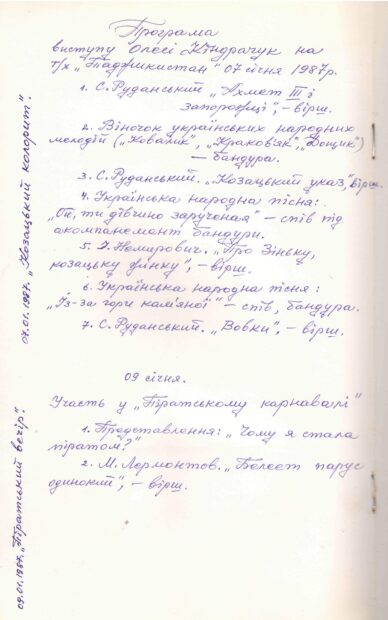 Програма
виступу Олесі Кіндрачук на
т/х „Таджикистан" 07 січня 1987р.
1. С. Руданський „Ахмет III і
запорожці", – вірш.
2. Віночок українських народних
мелодій („Ковалик", „Краков'як", „Дощик")
– бандура.
3. С. Руданський. „Козацький указ", – вірш.
4. Українська народна пісня:
„Ой, ти дівчино зарученая" – спів під
акомпанемент бандури.
5. Немирович. „Про Зіньку,
козацьку жінку", – вірш.
6. Українська народна пісня:
„Із-за гори кам'яної" – спів, бандура.
7. С. Руданський. „Вовки", – вірш.
09 січня.
Участь у „Піратському карнавалі"
1. Представлення: „Чому я стала
піратом?"
2. М. Лермонтов. „Белеет парус
одинокий", – вірш.
07.01.1987. „Козацький колорит".
09.01.1987. „Піратський вечір".